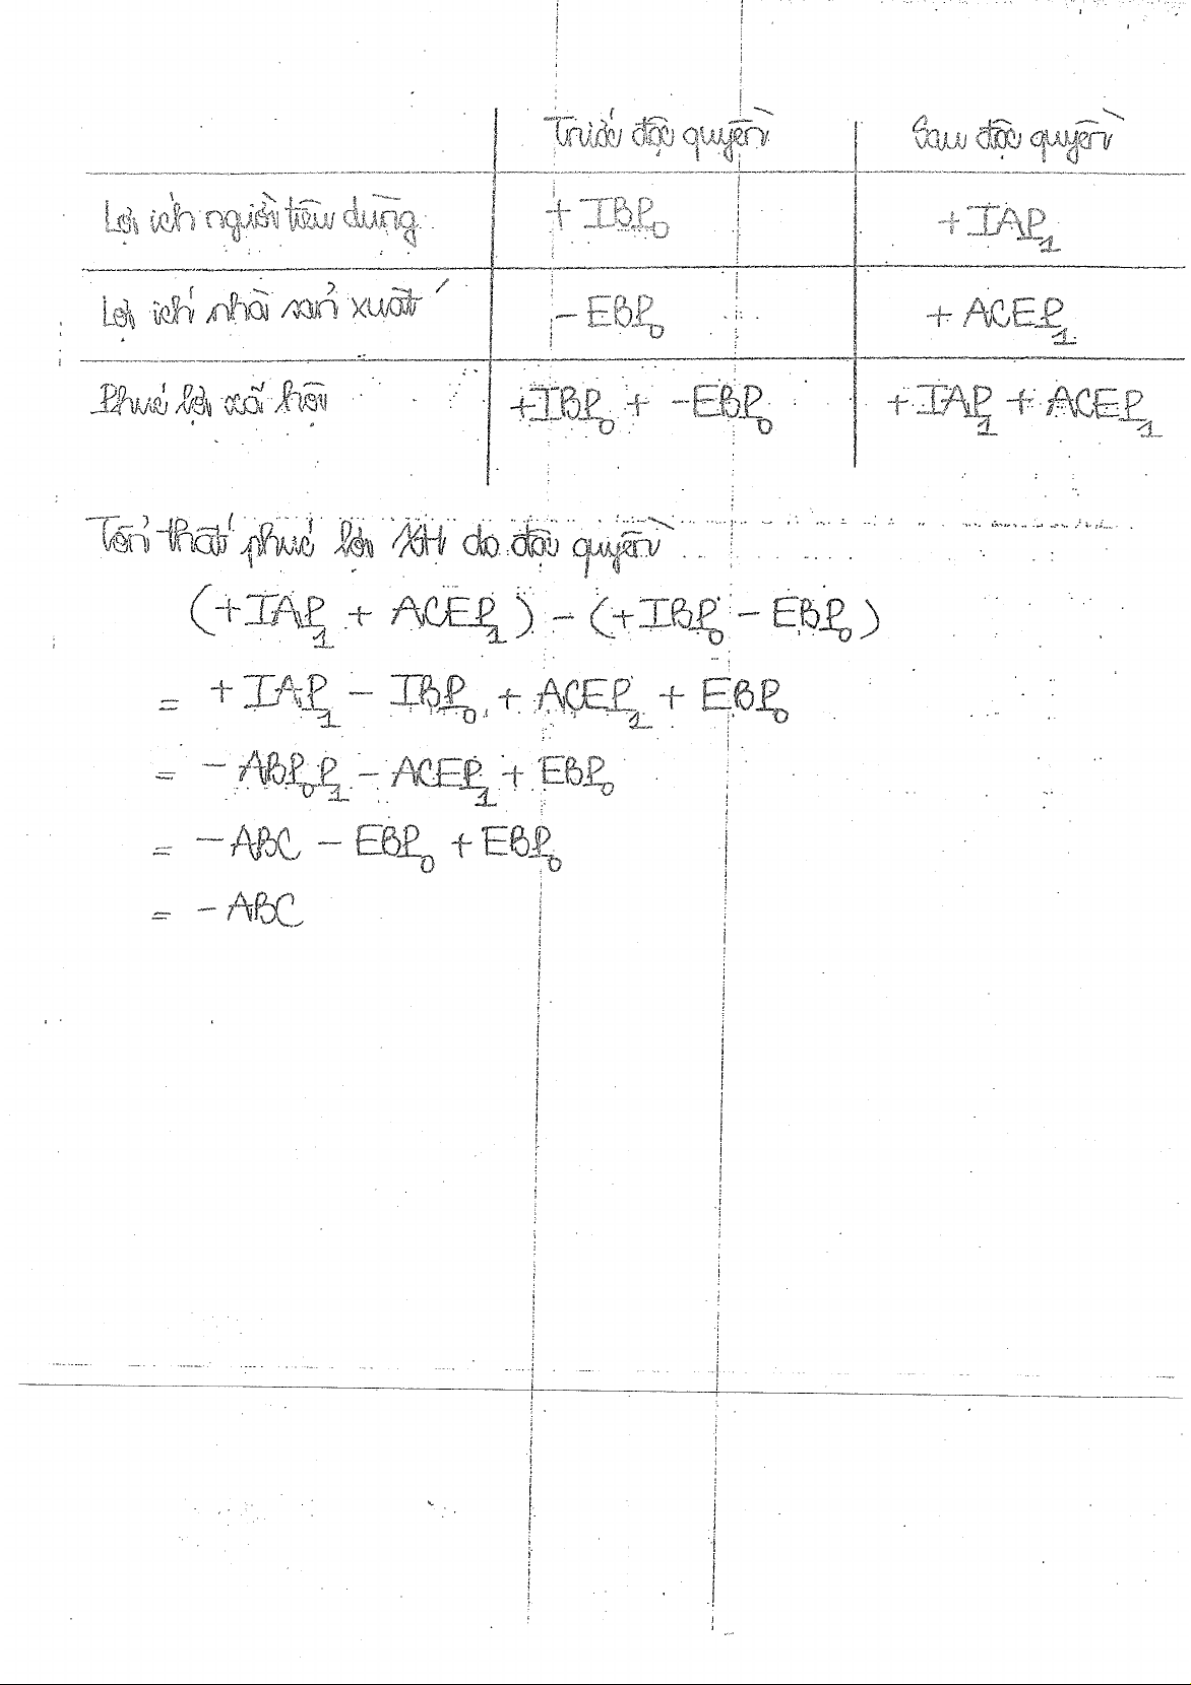 Trước độc quyền Sau độc quyền
Lợi ích người tiêu dùng + IBP₀ + IAP₁
Lợi ích nhà sản xuất - EBP₀ + ACEP₁
Phúc lợi xã hội +IBP₀ + -EBP₀ + IAP₁ + ACEP₁
Tổn thất phúc lợi XH do độc quyền
(+IAP₁ + ACEP₁) - (+IBP₀ - EBP₀)
= + IAP₁ - IBP₀ + ACEP₁ + EBP₀
= - ABP₀P₁ - ACEP₁ + EBP₀
= - ABC - EBP₀ + EBP₀
= - ABC